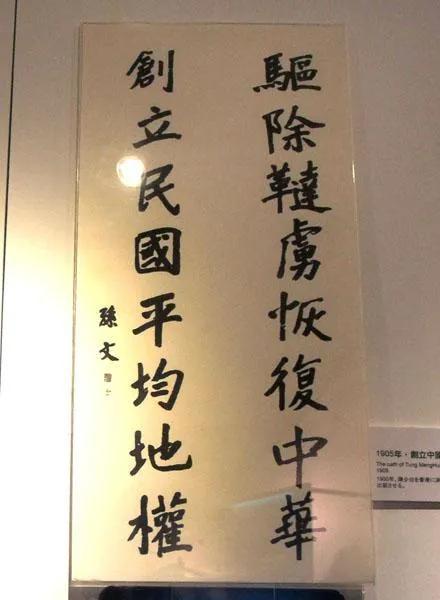 驅除韃虜恢復中華
創立民國平均地權
孫文
1905年，創立中國
The oath of Tung MengHui
1905.